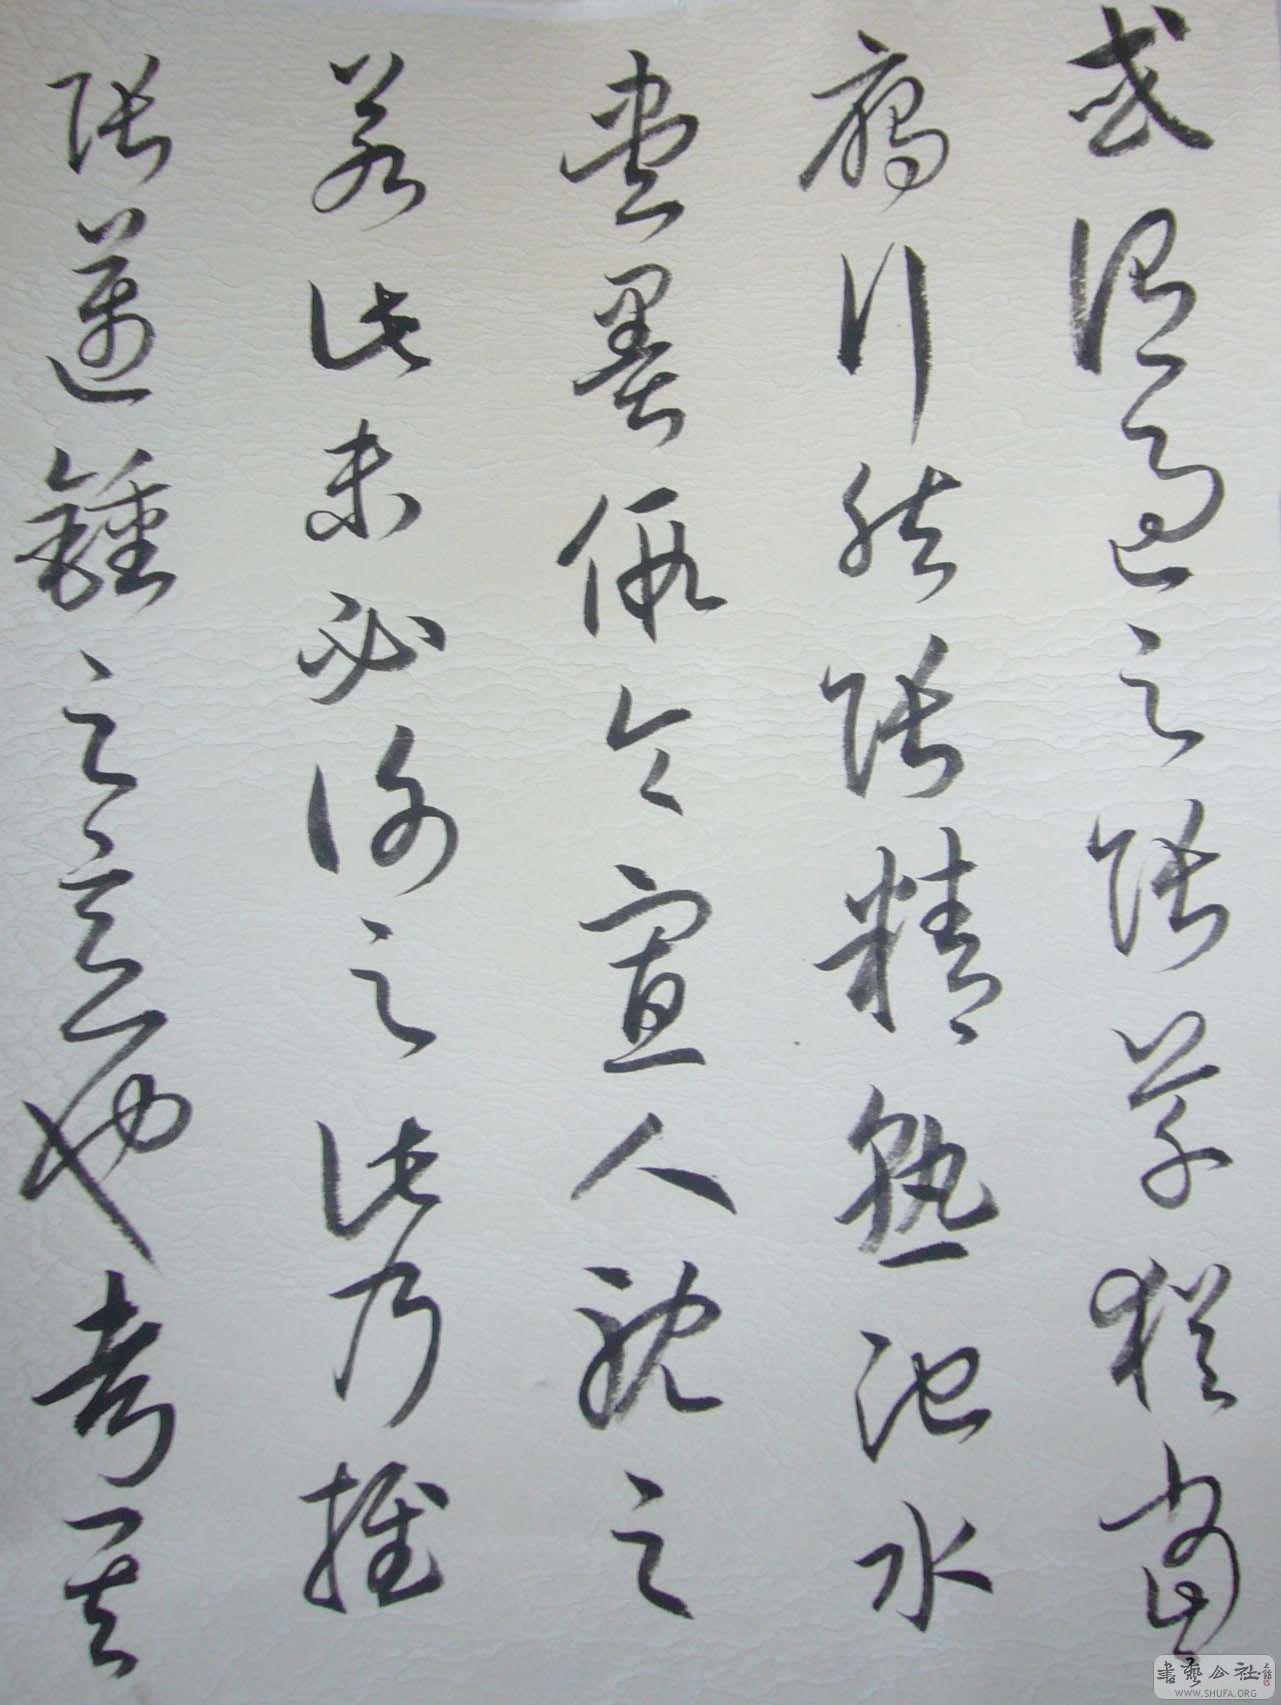 或谓过之张草犹当
雁行然张精熟池水
尽墨假令寡人耽之
若此未必谢之此乃推
张迈锺之意也考其
書藝公社
WWW.SHUFA.ORG